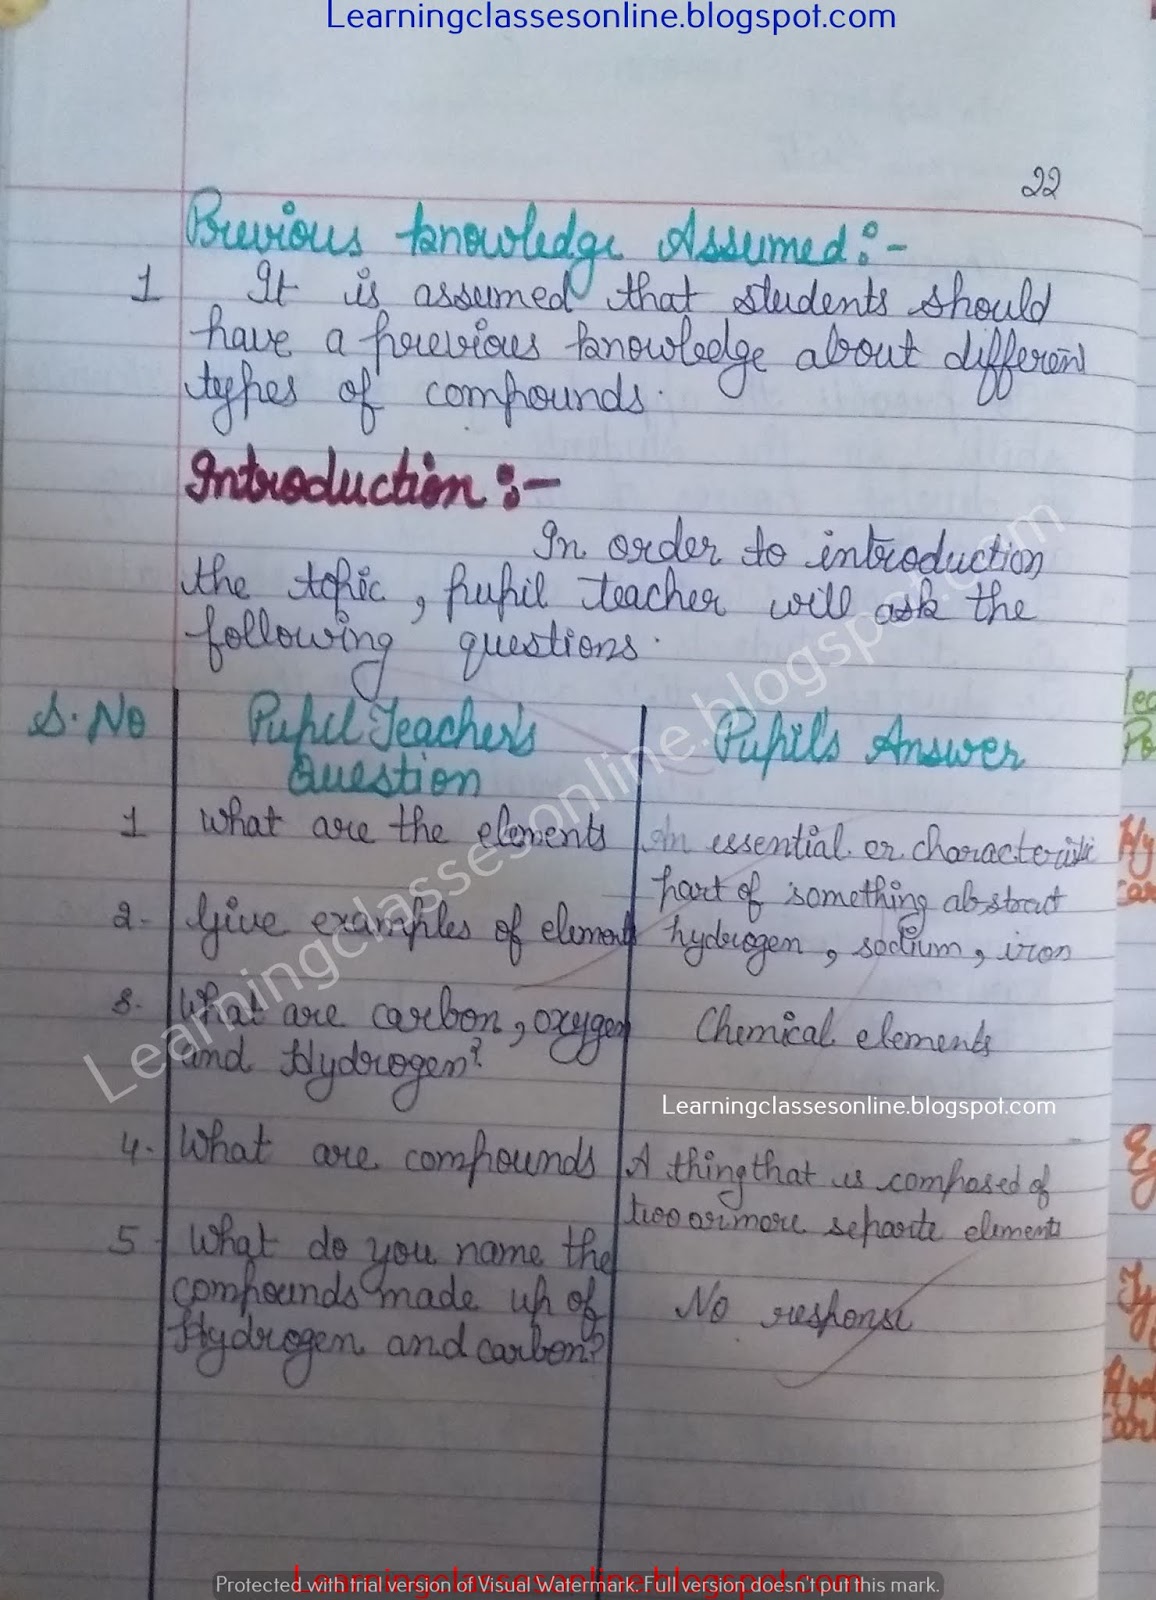 Learningclassesonline.blogspot.com
22
Previous knowledge Assumed:-
1 It is assumed that students should
have a previous knowledge about differen
types of compounds.
Introduction:-
In order to introduction
the topic, pupil teacher will ask the
following questions.
S.No
Pupil Teacher's
Question
Pupil's Answer
1 What are the elements
An essential or characteristic
part of something abstract
2- Give examples of element
hydrogen, sodium, iron
3. What are carbon, oxygen
and Hydrogen?
Chemical elements
Learningclassesonline.blogspot.com
4. What are compounds
A thing that is composed of
two or more separte elements
5 What do you name the
compounds made up of
Hydrogen and carbon?
No response
Learningclassesonline.blogspot.com
Learningclassesonline.blogspot.com
Protected with trial version of Visual Watermark. Full version doesn't put this mark.